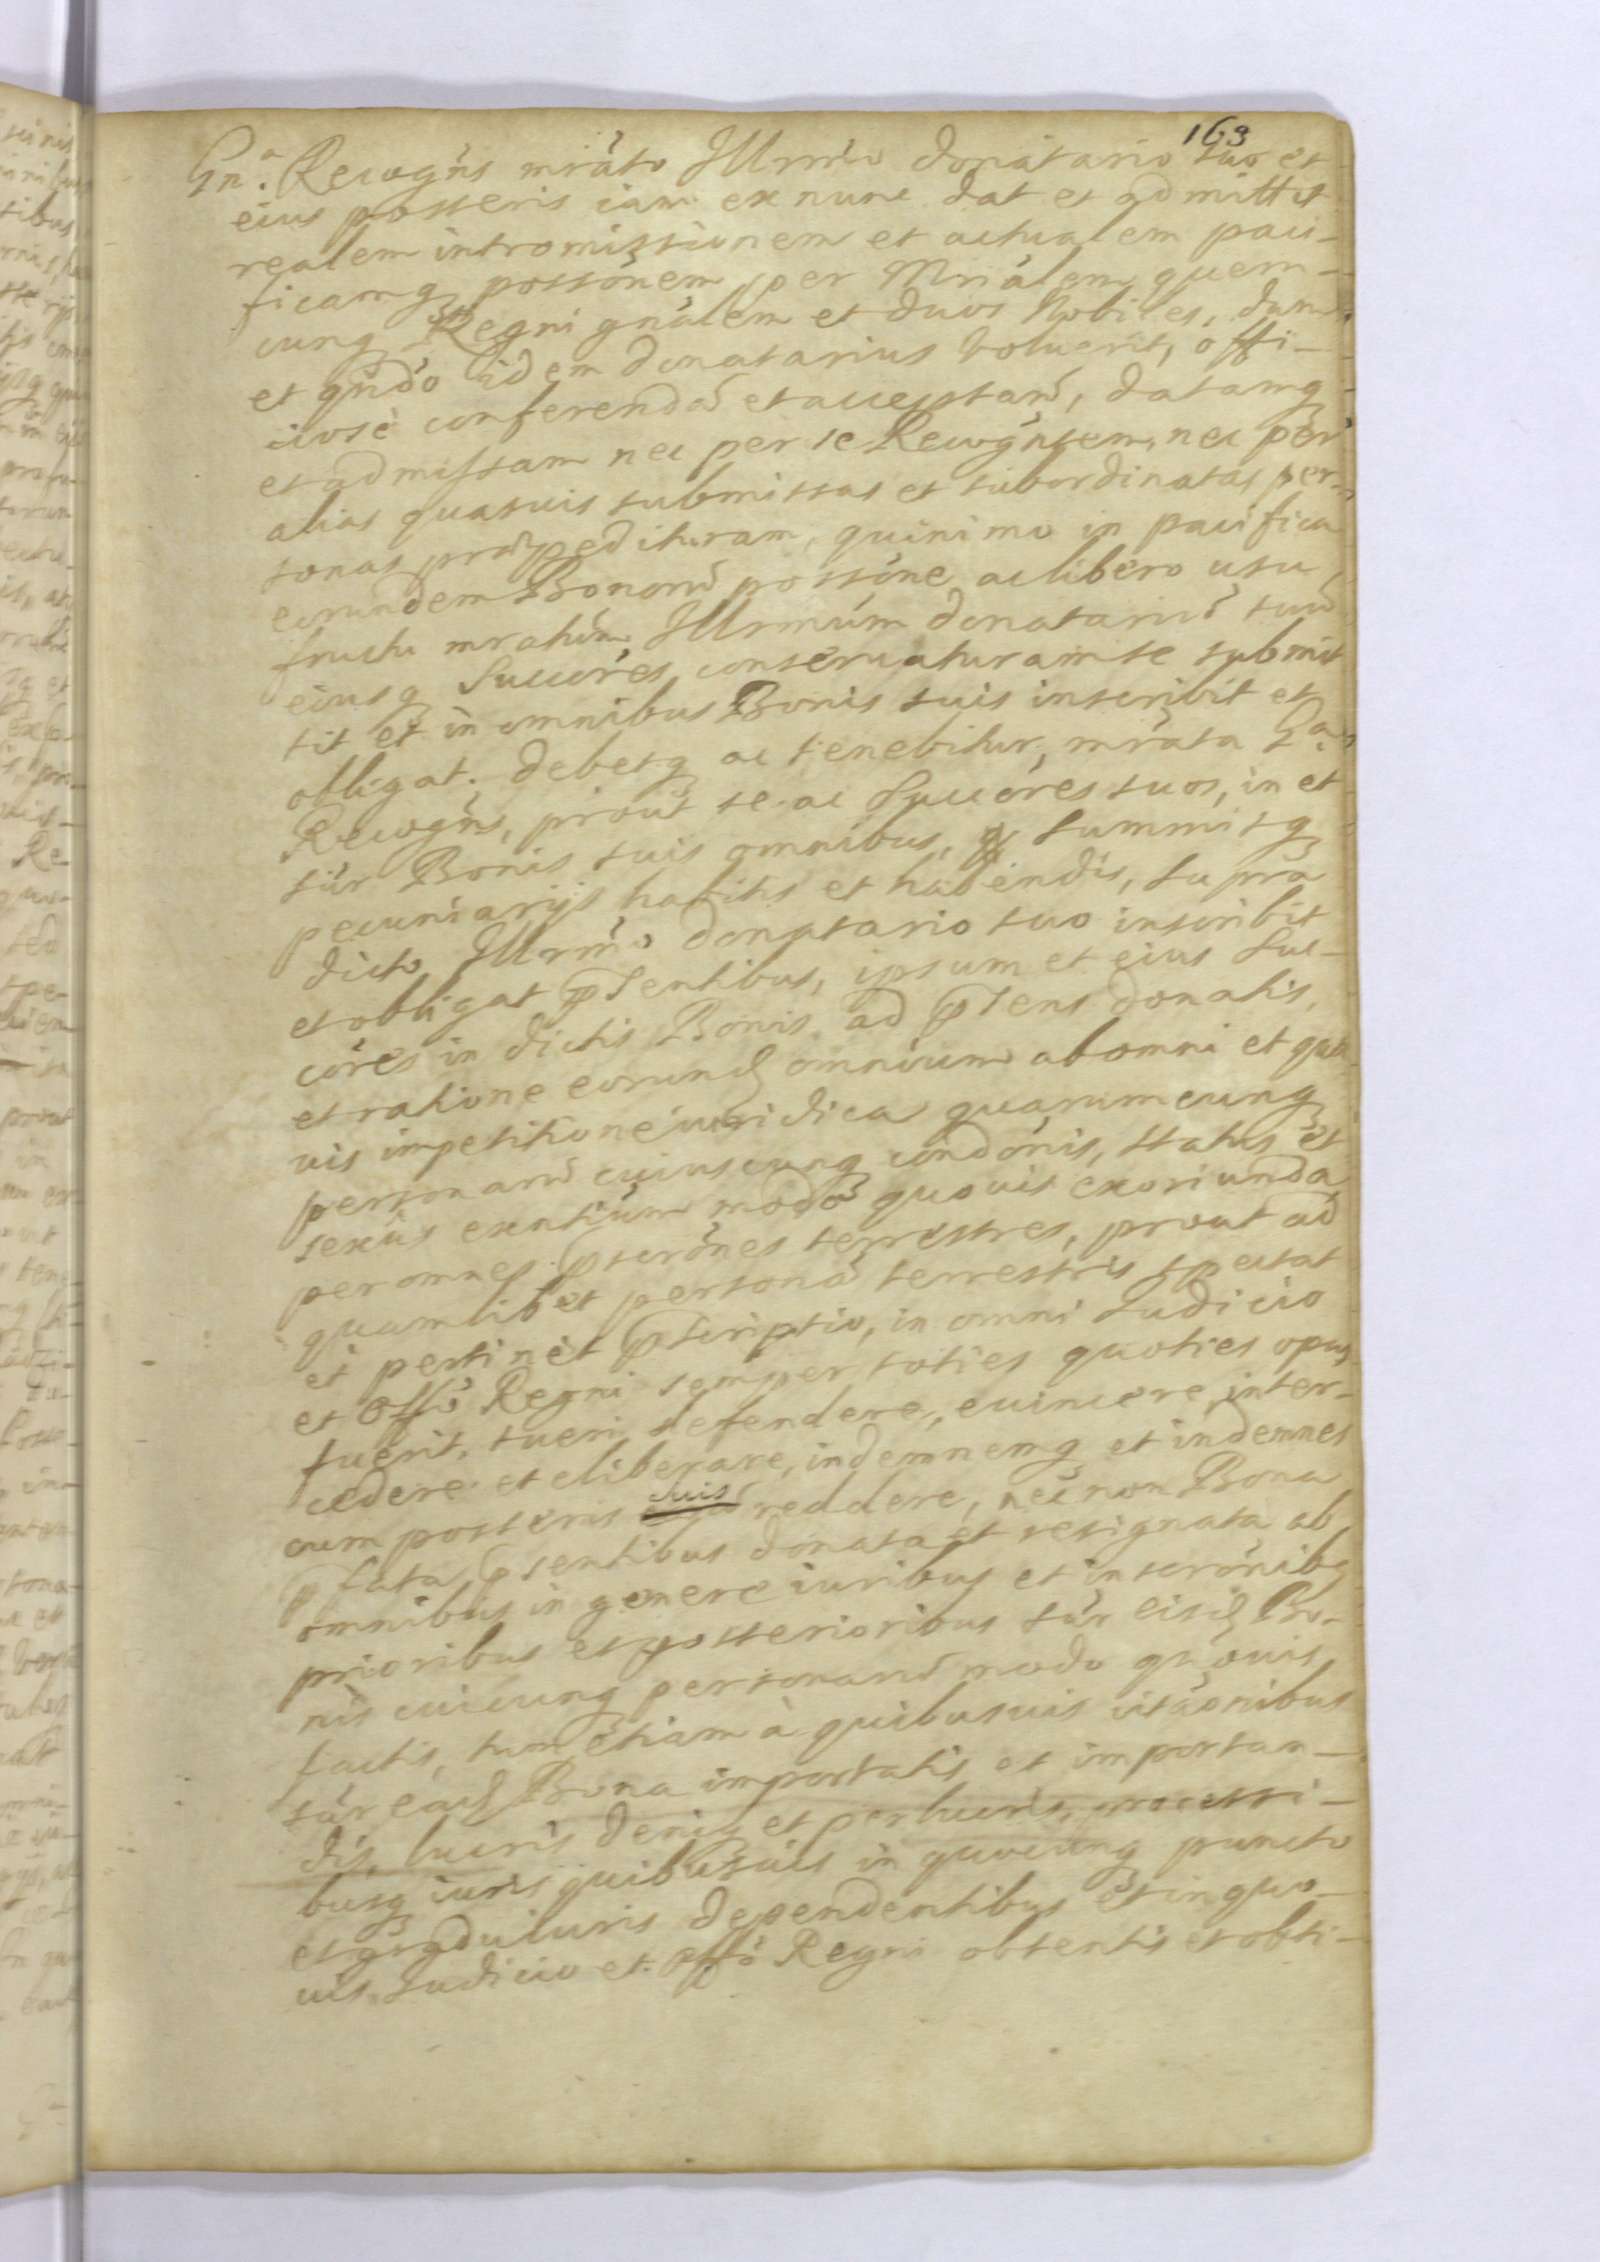 163
Gn.a Recogñs mrãto Illrmõ donatario suo et
eius posteris iam ex nunc dat et admittit
realem intromissionem et actualem paci-
ficamq possõnem per Mriãlem quem-
cunq Regni gnãlem et duos Nobiles, dum
et qñdo idem donatarius voluerit, offi-
ciosè conferendã et acceptanď, datamq
et admissam nec per se Recogñtem, nec per
alias quasuis submissas et subordinatas per-
sonas præpedituram, quinimo in pacifica
eorundem Bonorũ possõne ac libero usu
fructu mratũm, Illrmũm donatariũ suũ
eiusq Succõres conseruaturam se submit
tit et in omnibus Bonis suis inscribit et
obligat. debetq ac tenebitur, mrãta Ga.
Recogñs, proũt se ac Succõres suos, in et
sũr Bonis suis omnibus, Summisq
pecuniarijs habitis et habendis, supra
dicto Illrmõ donatario suo inscribit
et obligat pñsentibus, ipsum et eius Suc-
cõres in dictis Bonis ad pñsens donatis,
et ratione eorunď omnium ab omni et qua
uis impetitione iuridica quarumcunq
personarũ cuiuscunq condõnis, status et
sexũs exntiũm modõ quouis exoriunda
per omnes pscrõnes terrestres, prout ad
quamlibet personã terrestris spectat
et pertinet pscriptio, in omni Iudicio
et Offõ Regni semper toties quoties opus
fuerit, tueri, defendere, euincere, inter-
cedere et eliberare, indemnemq et indemnes
cum posteris suis reddere, necnon Bona
pfata pñsentibus donata et resignata ab
omnibus in genere iuribus et inscrõnibq
prioribus et posterioribus sũr eisď Bo-
nis cuicunq personarũ modo quouis
factis, tum etiam à quibusuis citãonibus
sũr eaď Bona importatis et importan-
dis, lucris deniq et perlucris, processi-
busq iuris quibusuis in quocunq puncto
et gradu iuris dependentibus et in quo-
uis Iudicio et Offõ Regni obtentis et obti-